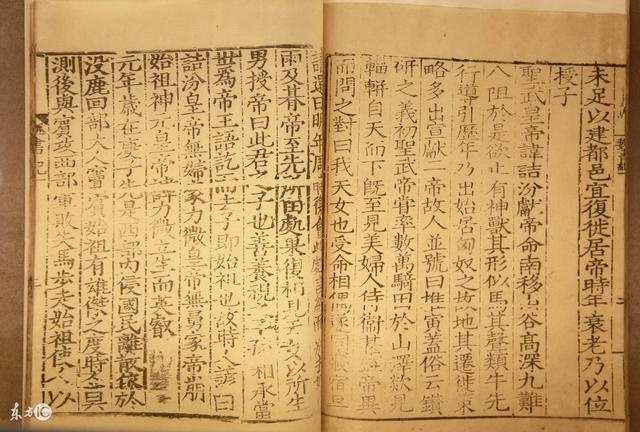 未足以建都邑宜復徙居帝時年衰老乃以位
授子
聖武皇帝諱詰汾獻帝命南移山谷高深九難
八阻於是欲止有神獸其形似馬其聲類牛先
行導引歷年乃出始居匈奴之故地其遷徙策
略多出宣獻二帝故人並號曰推寅蓋俗云鑽
研之義初聖武帝嘗率數萬騎田於山澤欻見
輜軿自天而下旣至見美婦人侍衞甚盛帝異
而問之對曰我天女也受命相偶遂同寢宿旦
請還曰明年周時復會此處言終而
雨及朞帝至先所田處果復相見天女以所生
男授帝曰此君之子也善養視之子孫相承當
世爲帝王語訖而去子即始祖也故時人諺曰
詰汾皇帝無婦家力微皇帝無舅家帝崩
始祖神元皇帝諱力微立生而英叡
元年歲在庚子先是西部內侵國民離散依於
没鹿回部大人竇賓始祖有雄傑之度時人莫
測後與賓攻西部軍敗失馬步走始祖使人以
東方IC